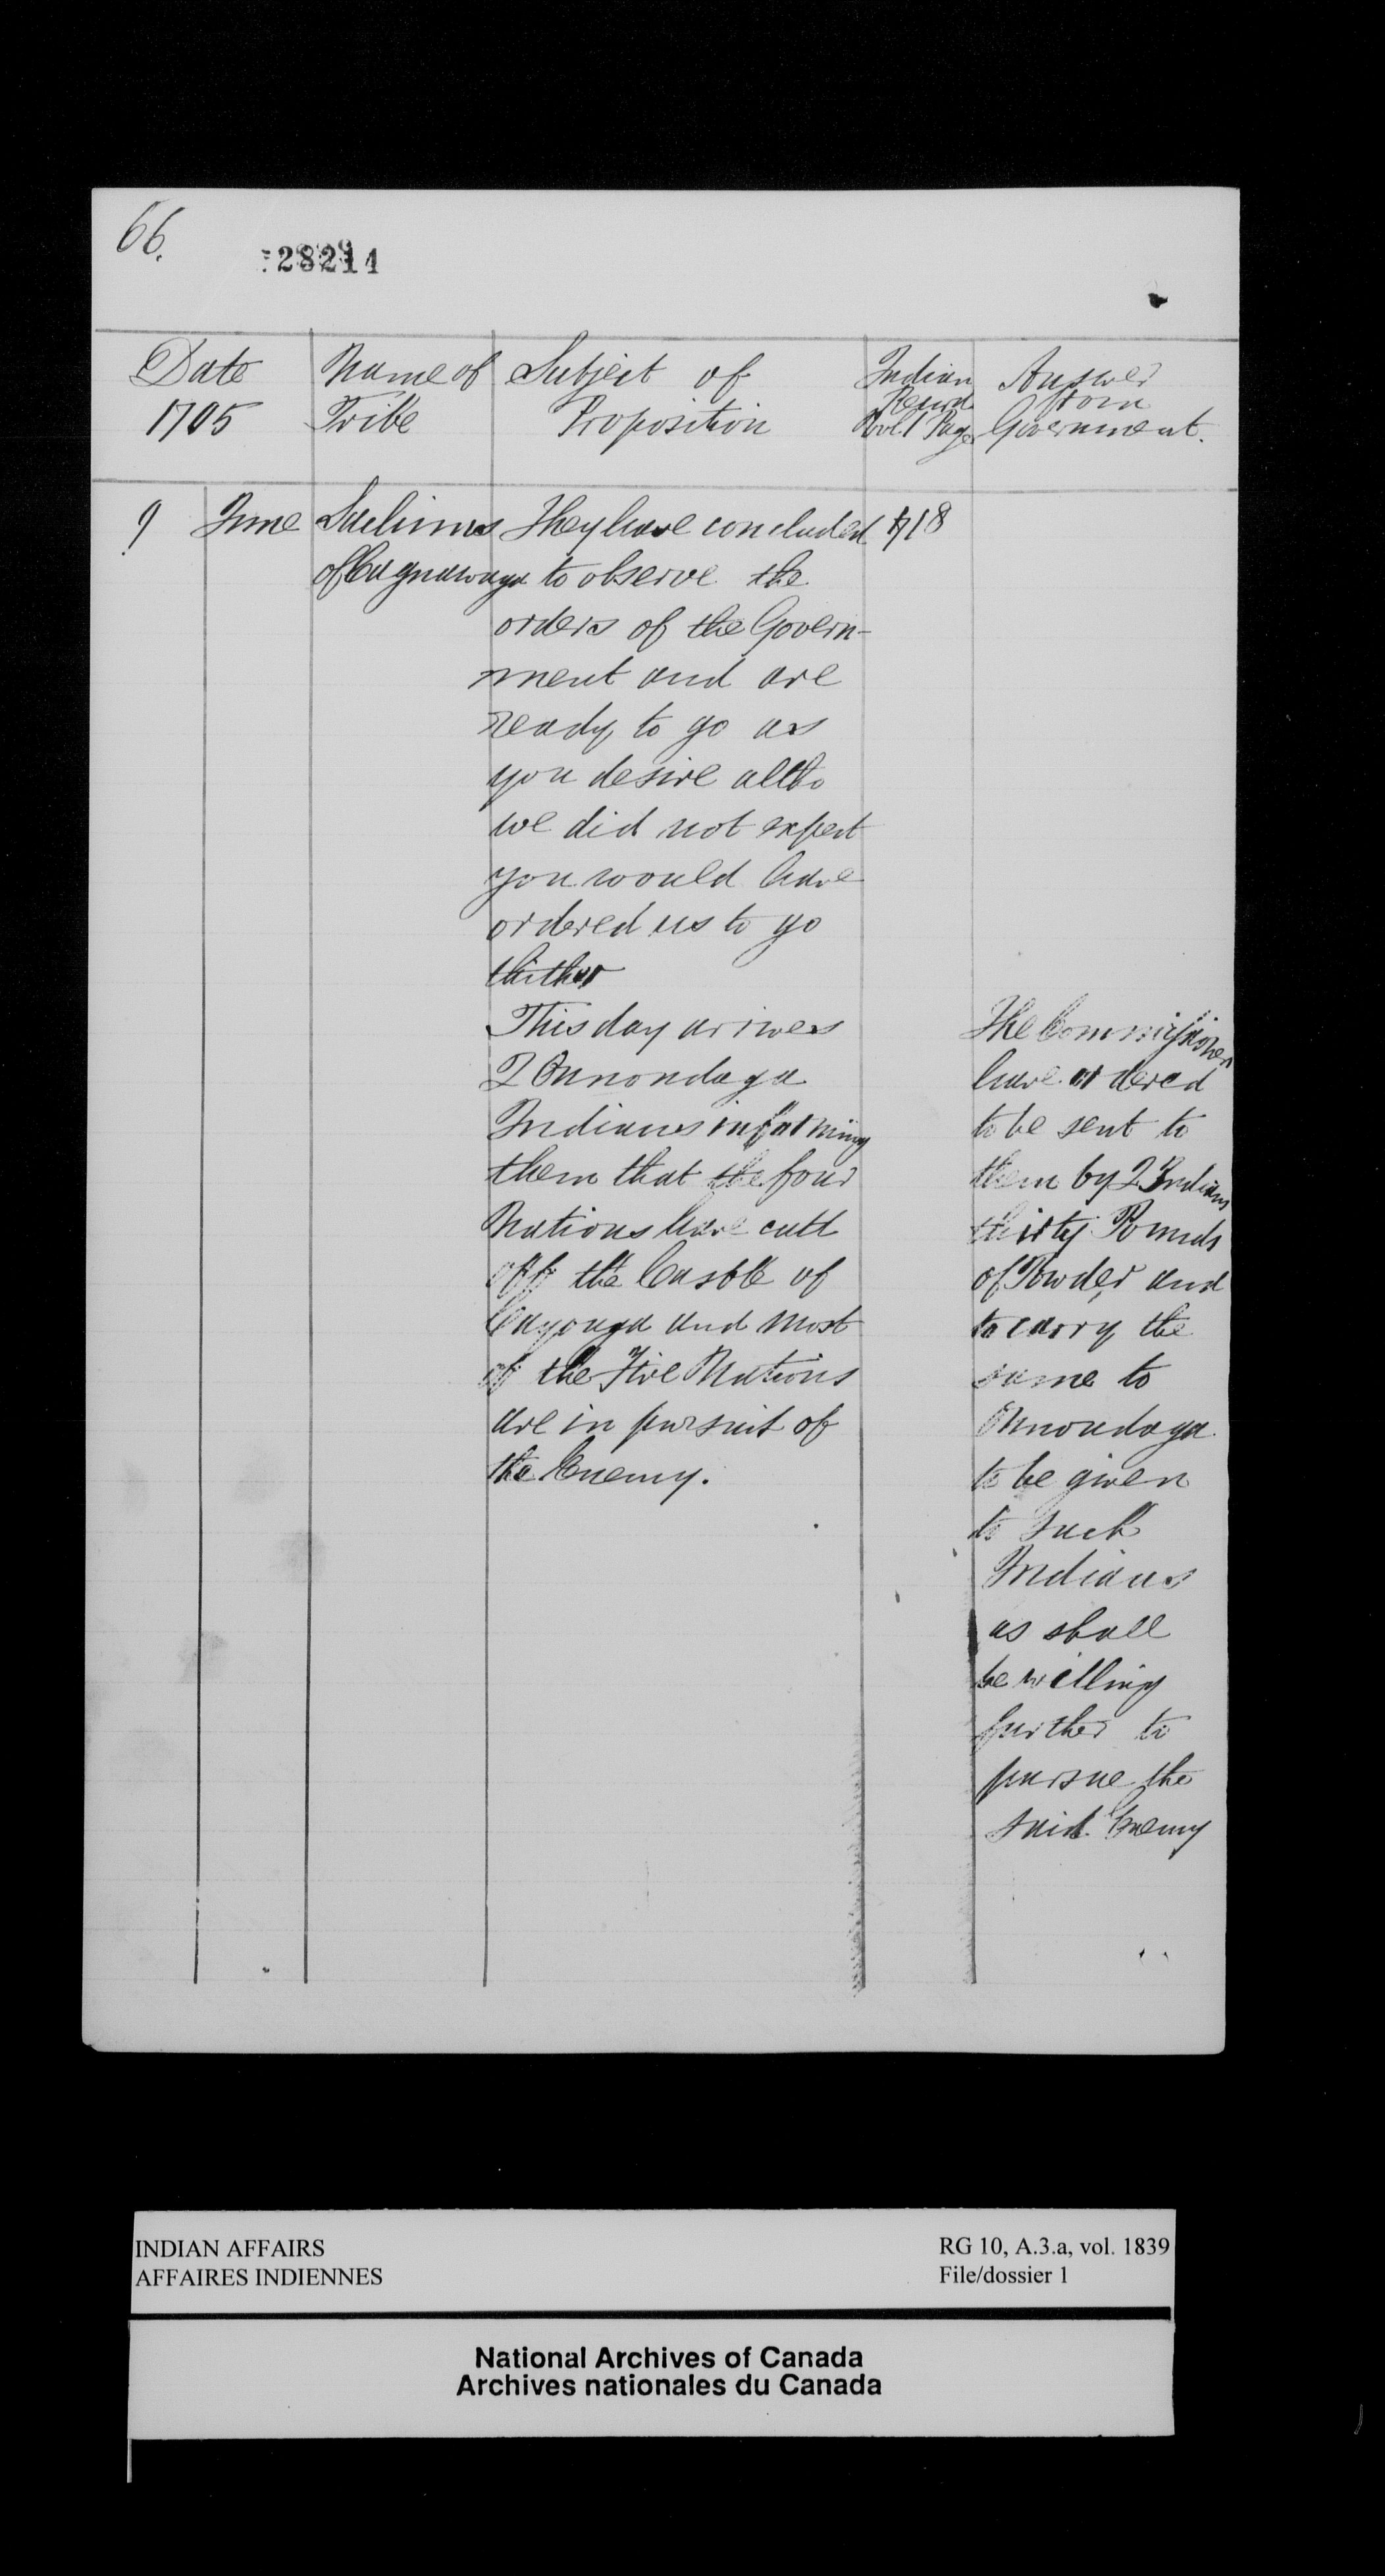 66.
28214
Date
1705
Name of
Tribe
Subject of
Proposition
Indian
Record
Vol. 1 Page
Answer
from
Government.
9 June
Sachims
of Cagnawaga
They have concluded
to observe the
orders of the Govern-
ment and are
ready to go as
you desire altho
we did not expect
you would have
ordered us to go
thither
718
This day arives
2 Onnondaga
Indians informing
them that the four
Nations have cutt
off the Castle of
Cayouga and most
of the Five Nations
are in pursuit of
the Enemy.
The Commissioners
have ordered
to be sent to
them by 2 Indians
thirty Pounds
of Powder and
to carry the
same to
Onnondaga
to be given
to such
Indians
as shall
be willing
further to
pursue the
said Enemy
INDIAN AFFAIRS
AFFAIRES INDIENNES
RG 10, A.3.a, vol. 1839
File/dossier 1
National Archives of Canada
Archives nationales du Canada